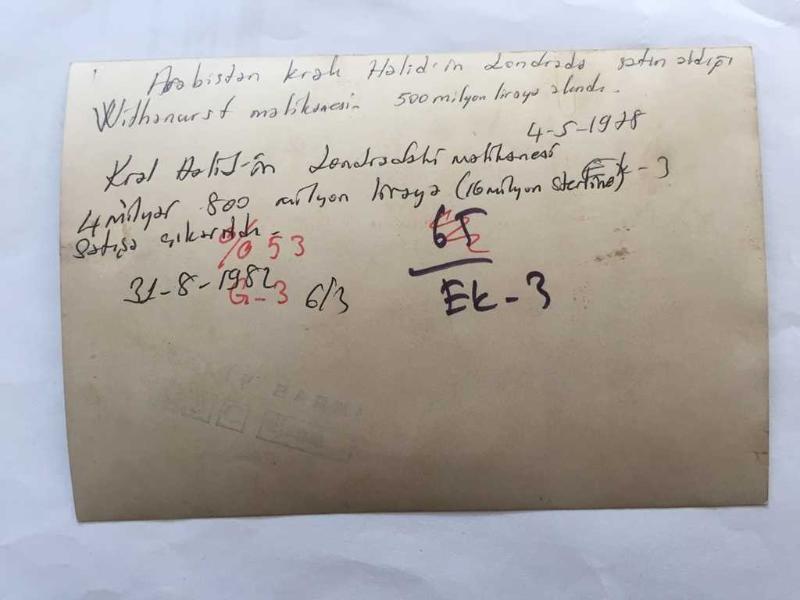 Arabistan kralı Halid-in Londrada satın aldığı
Withanurst malikanesin 500 milyon liraya alındı.
4-5-1978
Kral Halid-in Londradaki malikanesi
Ek-3
4 milyar 800 milyon liraya (16 milyon sterline)
satışa çıkarıldı.
% 53
6T
31-8-1982
G-3
6/3
Ek-3